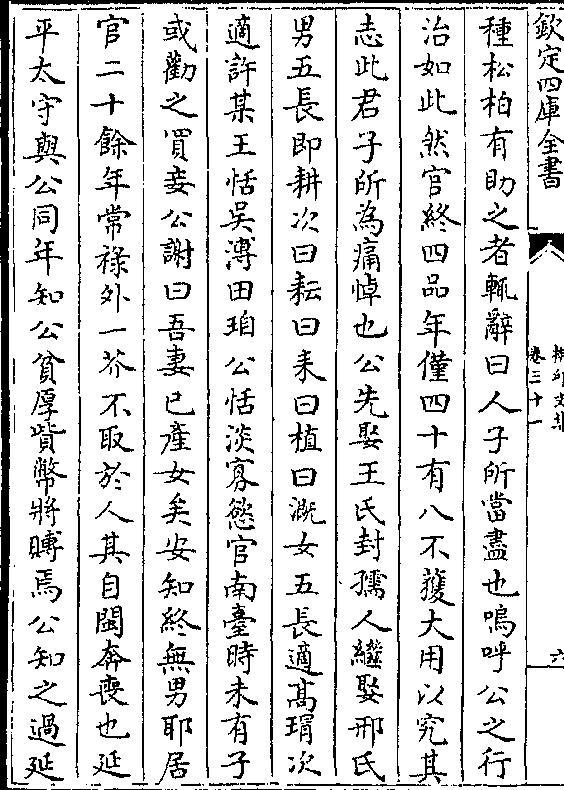 欽定四庫全書
卷三十一
六
種松柏有助之者輒辭曰人子所當盡也嗚呼公之行
治如此然官終四品年僅四十有八不獲大用以究其
志此君子所為痛悼也公先娶王氏封孺人繼娶邢氏
男五長即耕次曰耘曰耒曰植曰溉女五長適高㻛次
適許某王恬吳溥田珀公恬淡寡慾官南臺時未有子
或勸之買妾公謝曰吾妻已產女矣安知終無男耶居
官二十餘年常祿外一芥不取於人其自閩奔喪也延
平太守與公同年知公貧厚貲幣將賻焉公知之過延